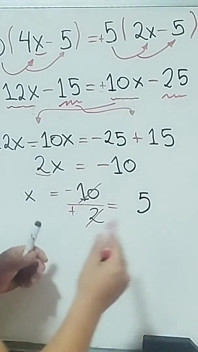 (4x - 5) = +5 (2x - 5)
12x - 15 = +10x - 25
2x - 10x = -25 + 15
2x = -10
x = -10/+2 = 5